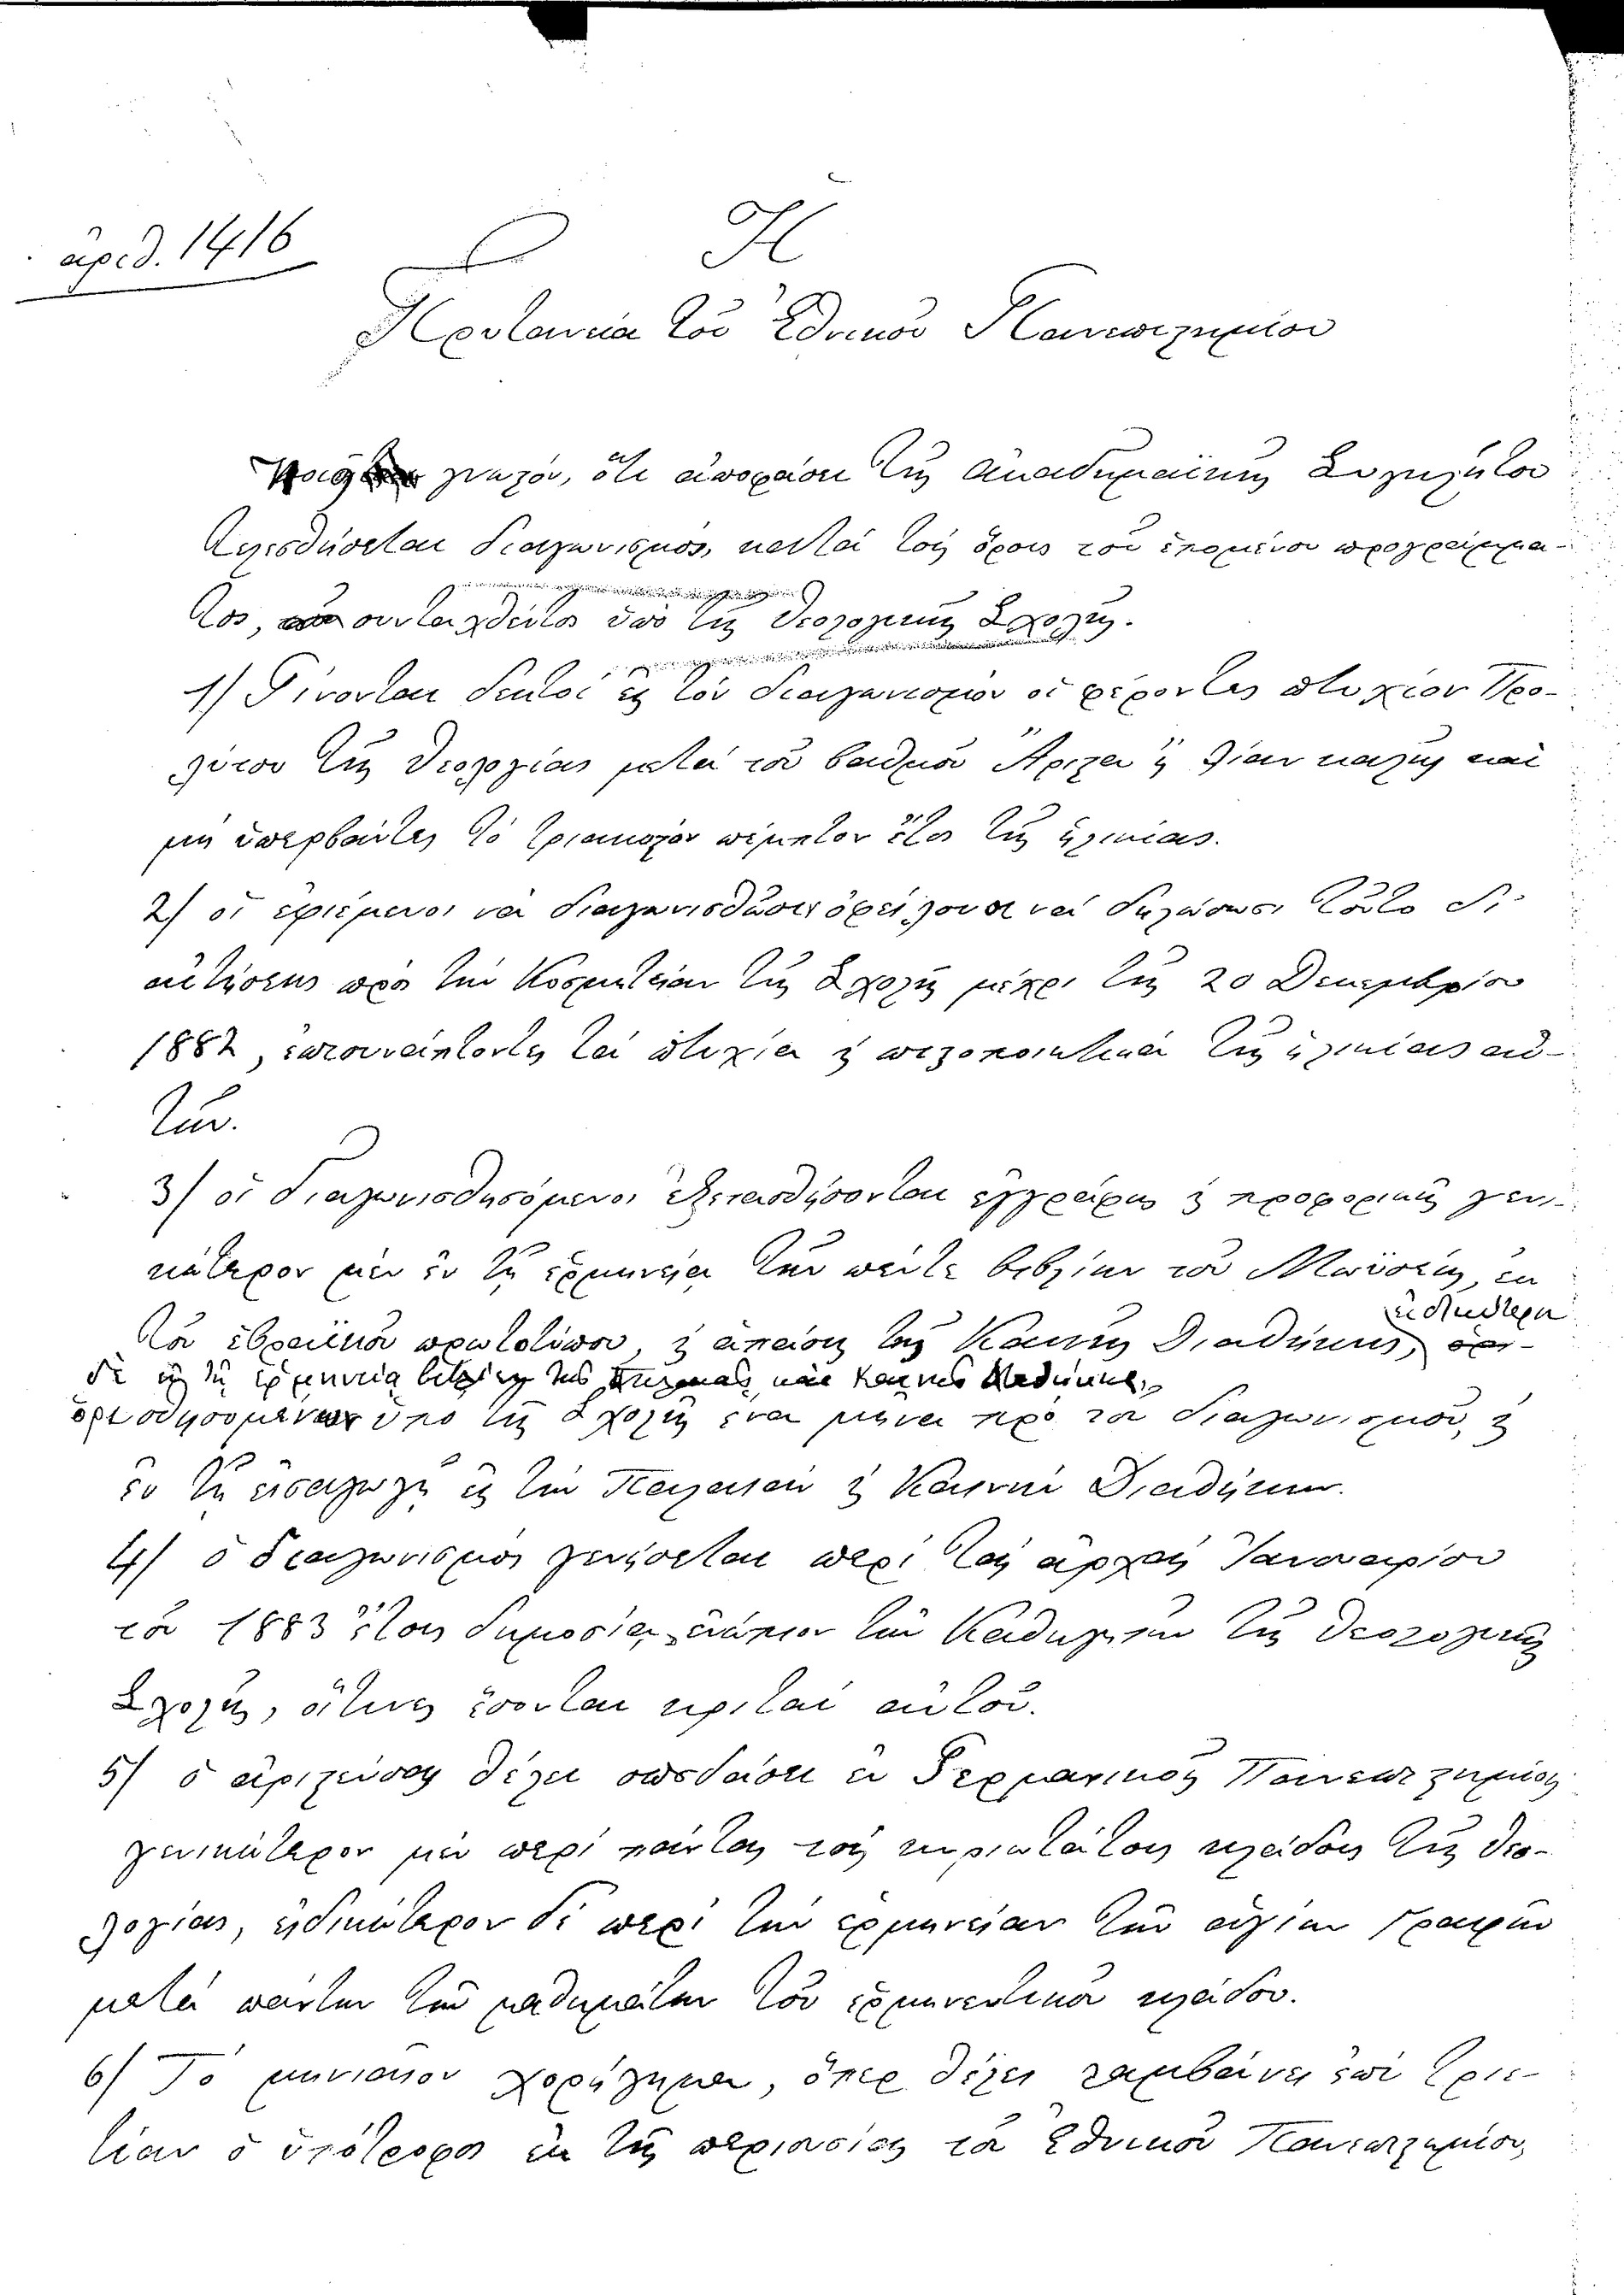 ἀριθ. 1416
Ἡ
Πρυτανεία τοῦ Ἐθνικοῦ Πανεπιστημίου
γνωστόν, ὅτι ἀποφάσει τῆς Ἀκαδημαϊκῆς Συγκλήτου
προκηρύσσεται διαγωνισμός, κατὰ τοὺς ὅρους τοῦ ἑπομένου προγράμμα-
τος, συνταχθέντος ὑπὸ τῆς Θεολογικῆς Σχολῆς.
1) Γίνονται δεκτοὶ εἰς τὸν διαγωνισμὸν οἱ φέροντες πτυχίον Προ-
λύτου τῆς Θεολογίας μετὰ τοῦ βαθμοῦ Ἄριστα ἢ λίαν καλῶς καὶ
μὴ ὑπερβάντες τὸ τριακοστὸν πέμπτον ἔτος τῆς ἡλικίας.
2) οἱ ἐφιέμενοι νὰ διαγωνισθῶσιν ὀφείλουσι νὰ δηλώσωσι τοῦτο δι'
αἰτήσεως πρὸς τὴν Κοσμητείαν τῆς Σχολῆς μέχρι τῆς 20 Δεκεμβρίου
1882, ἐπισυνάπτοντες τὰ πτυχία καὶ πιστοποιητικὰ τῆς ἡλικίας αὐ-
τῶν.
3) οἱ διαγωνισθησόμενοι ἐξετασθήσονται ἐγγράφως καὶ προφορικῶς γενι-
κώτερον μὲν ἐν τῇ ἑρμηνείᾳ τῶν πέντε βιβλίων τοῦ Μωϋσέως, ἐκ
εἰδικώτερον
τοῦ ἑβραϊκοῦ πρωτοτύπου, καὶ ἁπάσης τῆς Καινῆς Διαθήκης,
δὲ εἰς τὴν ἑρμηνείαν βιβλίων τῆς Παλαιᾶς καὶ Καινῆς Διαθήκης,
ὁρισθησομένων ὑπὸ τῆς Σχολῆς ἕνα μῆνα πρὸ τοῦ διαγωνισμοῦ, καὶ
ἐν τῇ εἰσαγωγῇ εἰς τὴν Παλαιὰν καὶ Καινὴν Διαθήκην.
4) ὁ διαγωνισμὸς γενήσεται περὶ τὰς ἀρχὰς Ἰανουαρίου
τοῦ 1883 ἔτους δημοσίᾳ ἐνώπιον τῶν Καθηγητῶν τῆς Θεολογικῆς
Σχολῆς, οἵτινες ἔσονται κριταὶ αὐτοῦ.
5) ὁ ἀριστεύσας θέλει σπουδάσει ἐν Γερμανικοῖς Πανεπιστημίοις
γενικώτερον μὲν περὶ πάντας τοὺς κυριωτάτους κλάδους τῆς Θεο-
λογίας, εἰδικώτερον δὲ περὶ τὴν ἑρμηνείαν τῶν ἁγίων Γραφῶν
μετὰ πάντων τῶν μαθημάτων τοῦ ἑρμηνευτικοῦ κλάδου.
6) Τὸ μηνιαῖον χορήγημα, ὅπερ θέλει λαμβάνει ἐπὶ τριε-
τίαν ὁ ὑπότροφος ἐκ τῆς περιουσίας τοῦ Ἐθνικοῦ Πανεπιστημίου,